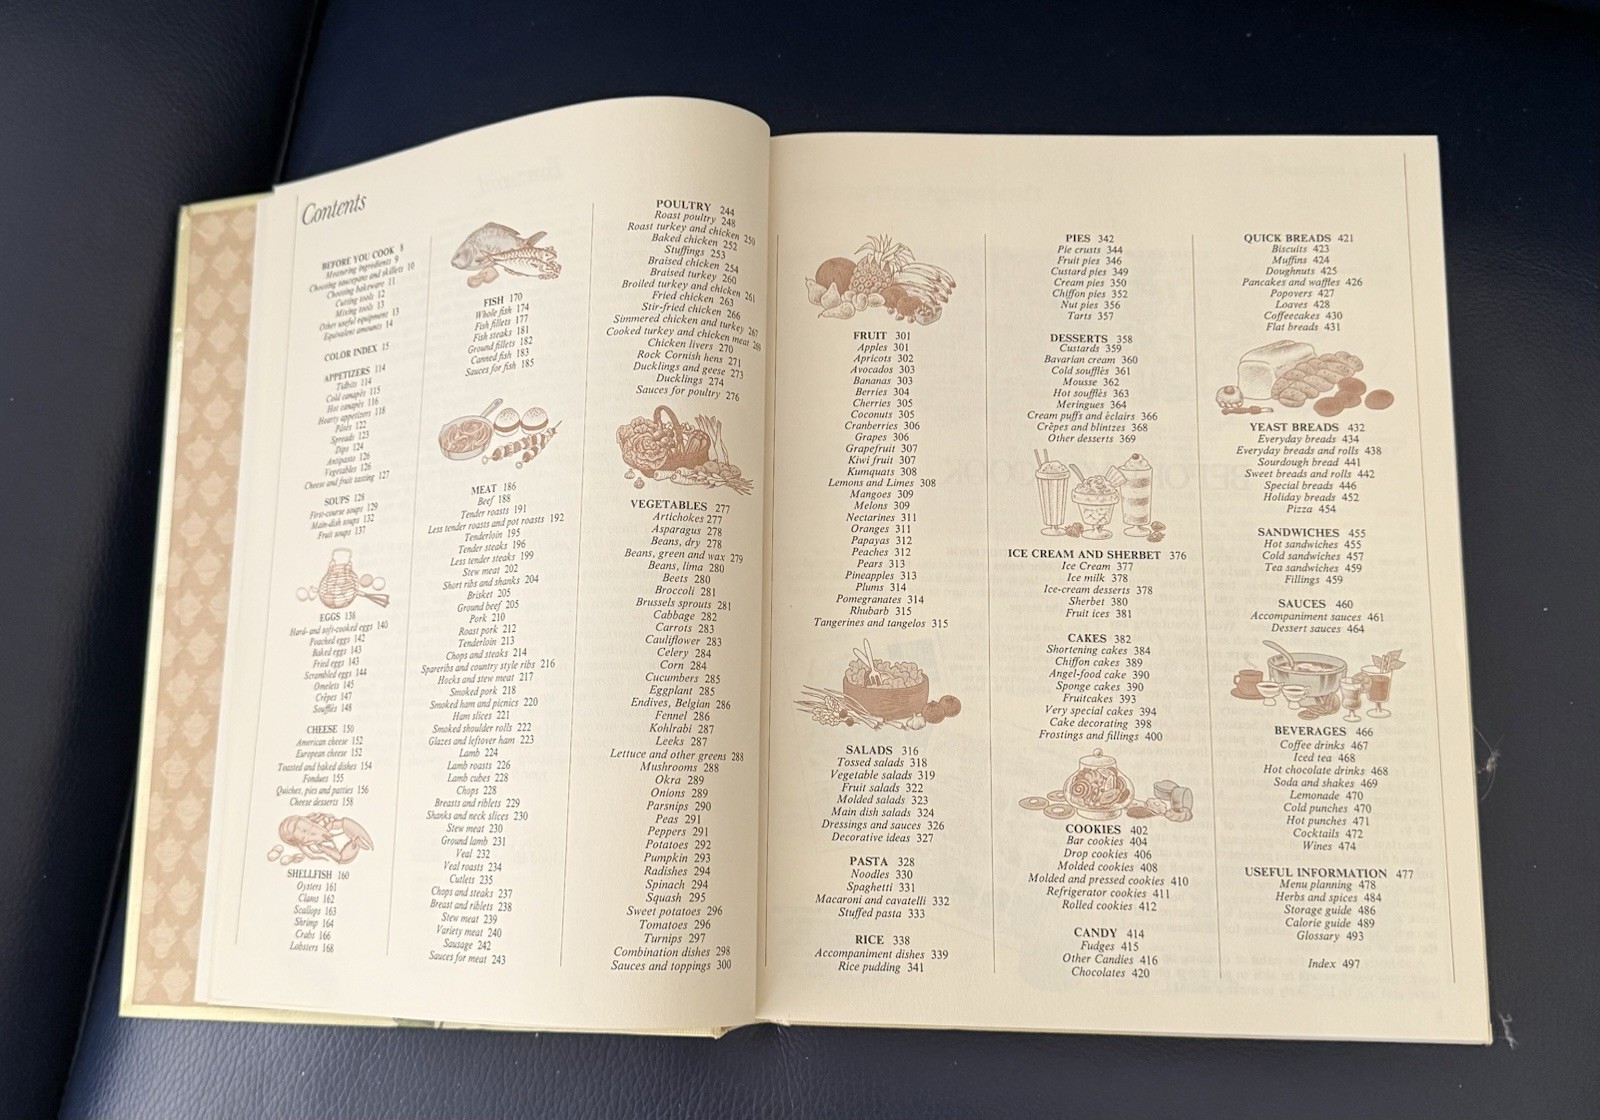 Contents
BEFORE YOU COOK 8
Measuring ingredients 9
Choosing saucepans and skillets 10
Choosing bakeware 11
Cutting tools 12
Mixing tools 13
Other useful equipment 13
Equivalent amounts 14
COLOR INDEX 15
APPETIZERS 114
Tidbits 114
Cold canapés 115
Hot canapés 116
Hearty appetizers 118
Pâtés 122
Spreads 123
Dips 124
Antipasto 126
Vegetables 126
Cheese and fruit tasting 127
SOUPS 128
First-course soups 129
Main-dish soups 132
Fruit soups 137
EGGS 138
Hard- and soft-cooked eggs 140
Poached eggs 142
Baked eggs 143
Fried eggs 143
Scrambled eggs 144
Omelets 145
Crêpes 147
Soufflés 148
CHEESE 150
American cheese 152
European cheese 152
Toasted and baked dishes 154
Fondues 155
Quiches, pies and patties 156
Cheese desserts 158
SHELLFISH 160
Oysters 161
Clams 162
Scallops 163
Shrimp 164
Crabs 166
Lobsters 168
FISH 170
Whole fish 174
Fish fillets 177
Fish steaks 181
Ground fillets 182
Canned fish 183
Sauces for fish 185
MEAT 186
Beef 188
Tender roasts 191
Less tender roasts and pot roasts 192
Tenderloin 195
Tender steaks 196
Less tender steaks 199
Stew meat 202
Short ribs and shanks 204
Brisket 205
Ground beef 205
Pork 210
Roast pork 212
Tenderloin 213
Chops and steaks 214
Spareribs and country style ribs 216
Hocks and stew meat 217
Smoked pork 218
Smoked ham and picnics 220
Ham slices 221
Smoked shoulder rolls 222
Glazes and leftover ham 223
Lamb 224
Lamb roasts 226
Lamb cubes 228
Chops 228
Breasts and riblets 229
Shanks and neck slices 230
Stew meat 230
Ground lamb 231
Veal 232
Veal roasts 234
Cutlets 235
Chops and steaks 237
Breast and riblets 238
Stew meat 239
Variety meat 240
Sausage 242
Sauces for meat 243
POULTRY 244
Roast poultry 248
Roast turkey and chicken 250
Baked chicken 252
Stuffings 253
Braised chicken 254
Braised turkey 260
Broiled turkey and chicken 261
Fried chicken 263
Stir-fried chicken 266
Simmered chicken and turkey 267
Cooked turkey and chicken meat 269
Chicken livers 270
Rock Cornish hens 271
Ducklings and geese 273
Ducklings 274
Sauces for poultry 276
VEGETABLES 277
Artichokes 277
Asparagus 278
Beans, dry 278
Beans, green and wax 279
Beans, lima 280
Beets 280
Broccoli 281
Brussels sprouts 281
Cabbage 282
Carrots 283
Cauliflower 283
Celery 284
Corn 284
Cucumbers 285
Eggplant 285
Endives, Belgian 286
Fennel 286
Kohlrabi 287
Leeks 287
Lettuce and other greens 288
Mushrooms 288
Okra 289
Onions 289
Parsnips 290
Peas 291
Peppers 291
Potatoes 292
Pumpkin 293
Radishes 294
Spinach 294
Squash 295
Sweet potatoes 296
Tomatoes 296
Turnips 297
Combination dishes 298
Sauces and toppings 300
FRUIT 301
Apples 301
Apricots 302
Avocados 303
Bananas 303
Berries 304
Cherries 305
Coconuts 305
Cranberries 306
Grapes 306
Grapefruit 307
Kiwi fruit 307
Kumquats 308
Lemons and Limes 308
Mangoes 309
Melons 309
Nectarines 311
Oranges 311
Papayas 312
Peaches 312
Pears 313
Pineapples 313
Plums 314
Pomegranates 314
Rhubarb 315
Tangerines and tangelos 315
SALADS 316
Tossed salads 318
Vegetable salads 319
Fruit salads 322
Molded salads 323
Main dish salads 324
Dressings and sauces 326
Decorative ideas 327
PASTA 328
Noodles 330
Spaghetti 331
Macaroni and cavatelli 332
Stuffed pasta 333
RICE 338
Accompaniment dishes 339
Rice pudding 341
PIES 342
Pie crusts 344
Fruit pies 346
Custard pies 349
Cream pies 350
Chiffon pies 352
Nut pies 356
Tarts 357
DESSERTS 358
Custards 359
Bavarian cream 360
Cold soufflés 361
Mousse 362
Hot soufflés 363
Meringues 364
Cream puffs and éclairs 366
Crêpes and blintzes 368
Other desserts 369
ICE CREAM AND SHERBET 376
Ice Cream 377
Ice milk 378
Ice-cream desserts 378
Sherbet 380
Fruit ices 381
CAKES 382
Shortening cakes 384
Chiffon cakes 389
Angel-food cake 390
Sponge cakes 390
Fruitcakes 393
Very special cakes 394
Cake decorating 398
Frostings and fillings 400
COOKIES 402
Bar cookies 404
Drop cookies 406
Molded cookies 408
Molded and pressed cookies 410
Refrigerator cookies 411
Rolled cookies 412
CANDY 414
Fudges 415
Other Candies 416
Chocolates 420
QUICK BREADS 421
Biscuits 423
Muffins 424
Doughnuts 425
Pancakes and waffles 426
Popovers 427
Loaves 428
Coffeecakes 430
Flat breads 431
YEAST BREADS 432
Everyday breads 434
Everyday breads and rolls 438
Sourdough bread 441
Sweet breads and rolls 442
Special breads 446
Holiday breads 452
Pizza 454
SANDWICHES 455
Hot sandwiches 455
Cold sandwiches 457
Tea sandwiches 459
Fillings 459
SAUCES 460
Accompaniment sauces 461
Dessert sauces 464
BEVERAGES 466
Coffee drinks 467
Iced tea 468
Hot chocolate drinks 468
Soda and shakes 469
Lemonade 470
Cold punches 470
Hot punches 471
Cocktails 472
Wines 474
USEFUL INFORMATION 477
Menu planning 478
Herbs and spices 484
Storage guide 486
Calorie guide 489
Glossary 493
Index 497